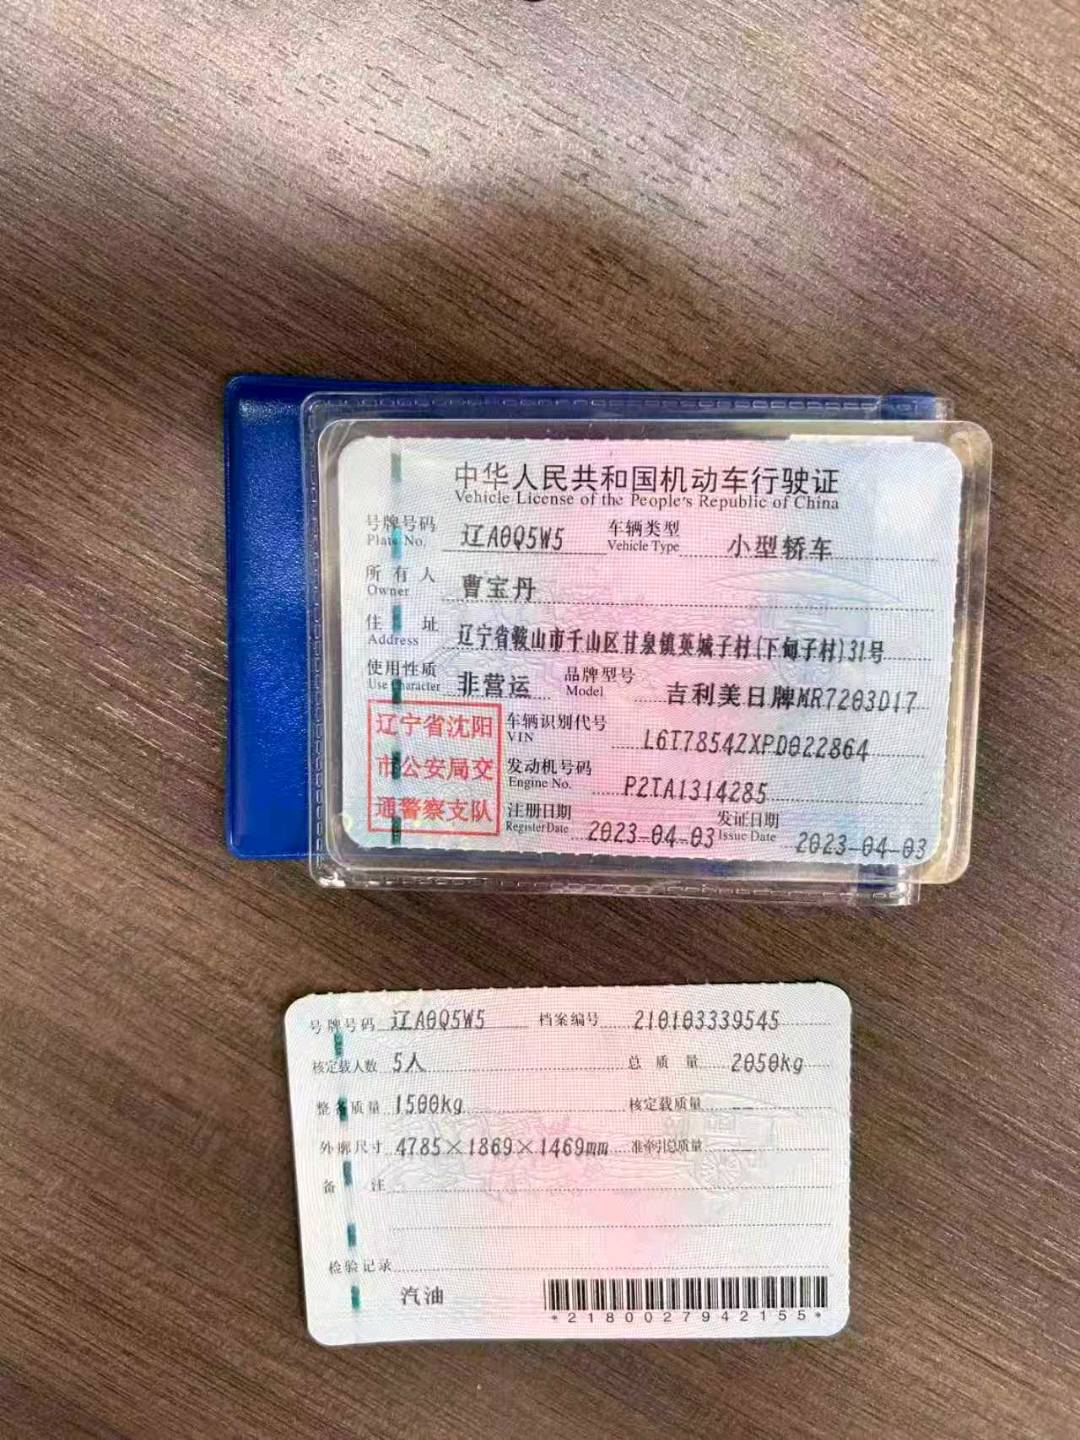 中华人民共和国机动车行驶证
Vehicle License of the People's Republic of China
号牌号码 辽A0Q5W5 车辆类型 小型轿车
Plate No. Vehicle Type
所有人 曹宝丹
Owner
住址 辽宁省鞍山市千山区甘泉镇英城子村(下甸子村)31号
Address
使用性质 非营运 品牌型号 吉利美日牌MR7203D17
Use Character Model
辽宁省沈阳 车辆识别代号 L6T7854ZXPD022864
VIN
市公安局交 发动机号码 P2TA1314285
Engine No.
通警察支队 注册日期 2023-04-03 发证日期 2023-04-03
Register Date Issue Date
号牌号码 辽A0Q5W5 档案编号 210103339545
核定载人数 5人 总质量 2050kg
整备质量 1500kg 核定载质量 --
外廓尺寸 4785×1869×1469mm 准牵引总质量
备注
检验记录
汽油
*2180027942155*